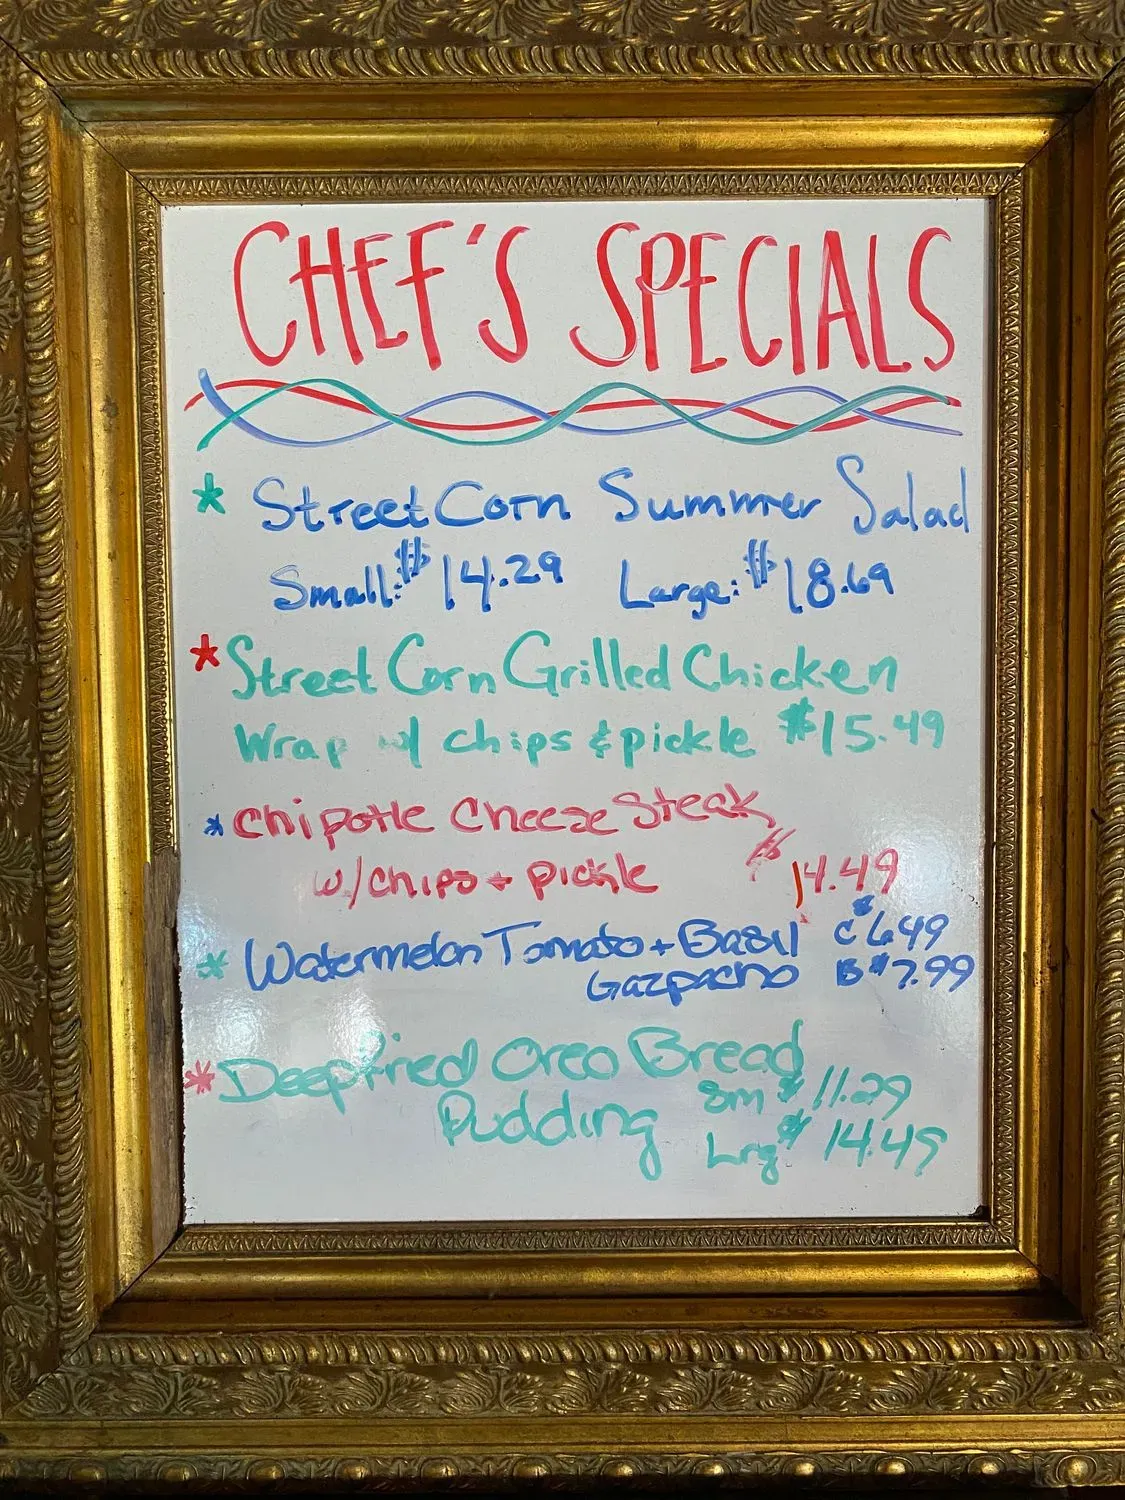 CHEF'S SPECIALS
* Street Corn Summer Salad
Small: $14.29 Large: $18.69
* Street Corn Grilled Chicken
Wrap w/ chips & pickle $15.49
* Chipotle Cheese Steak
w/chips + pickle $14.49
* Watermelon Tomato + Basil C $6.49
Gazpacho B $7.99
* Deep Fried Oreo Bread
Pudding Sm $11.29
Lrg $14.49